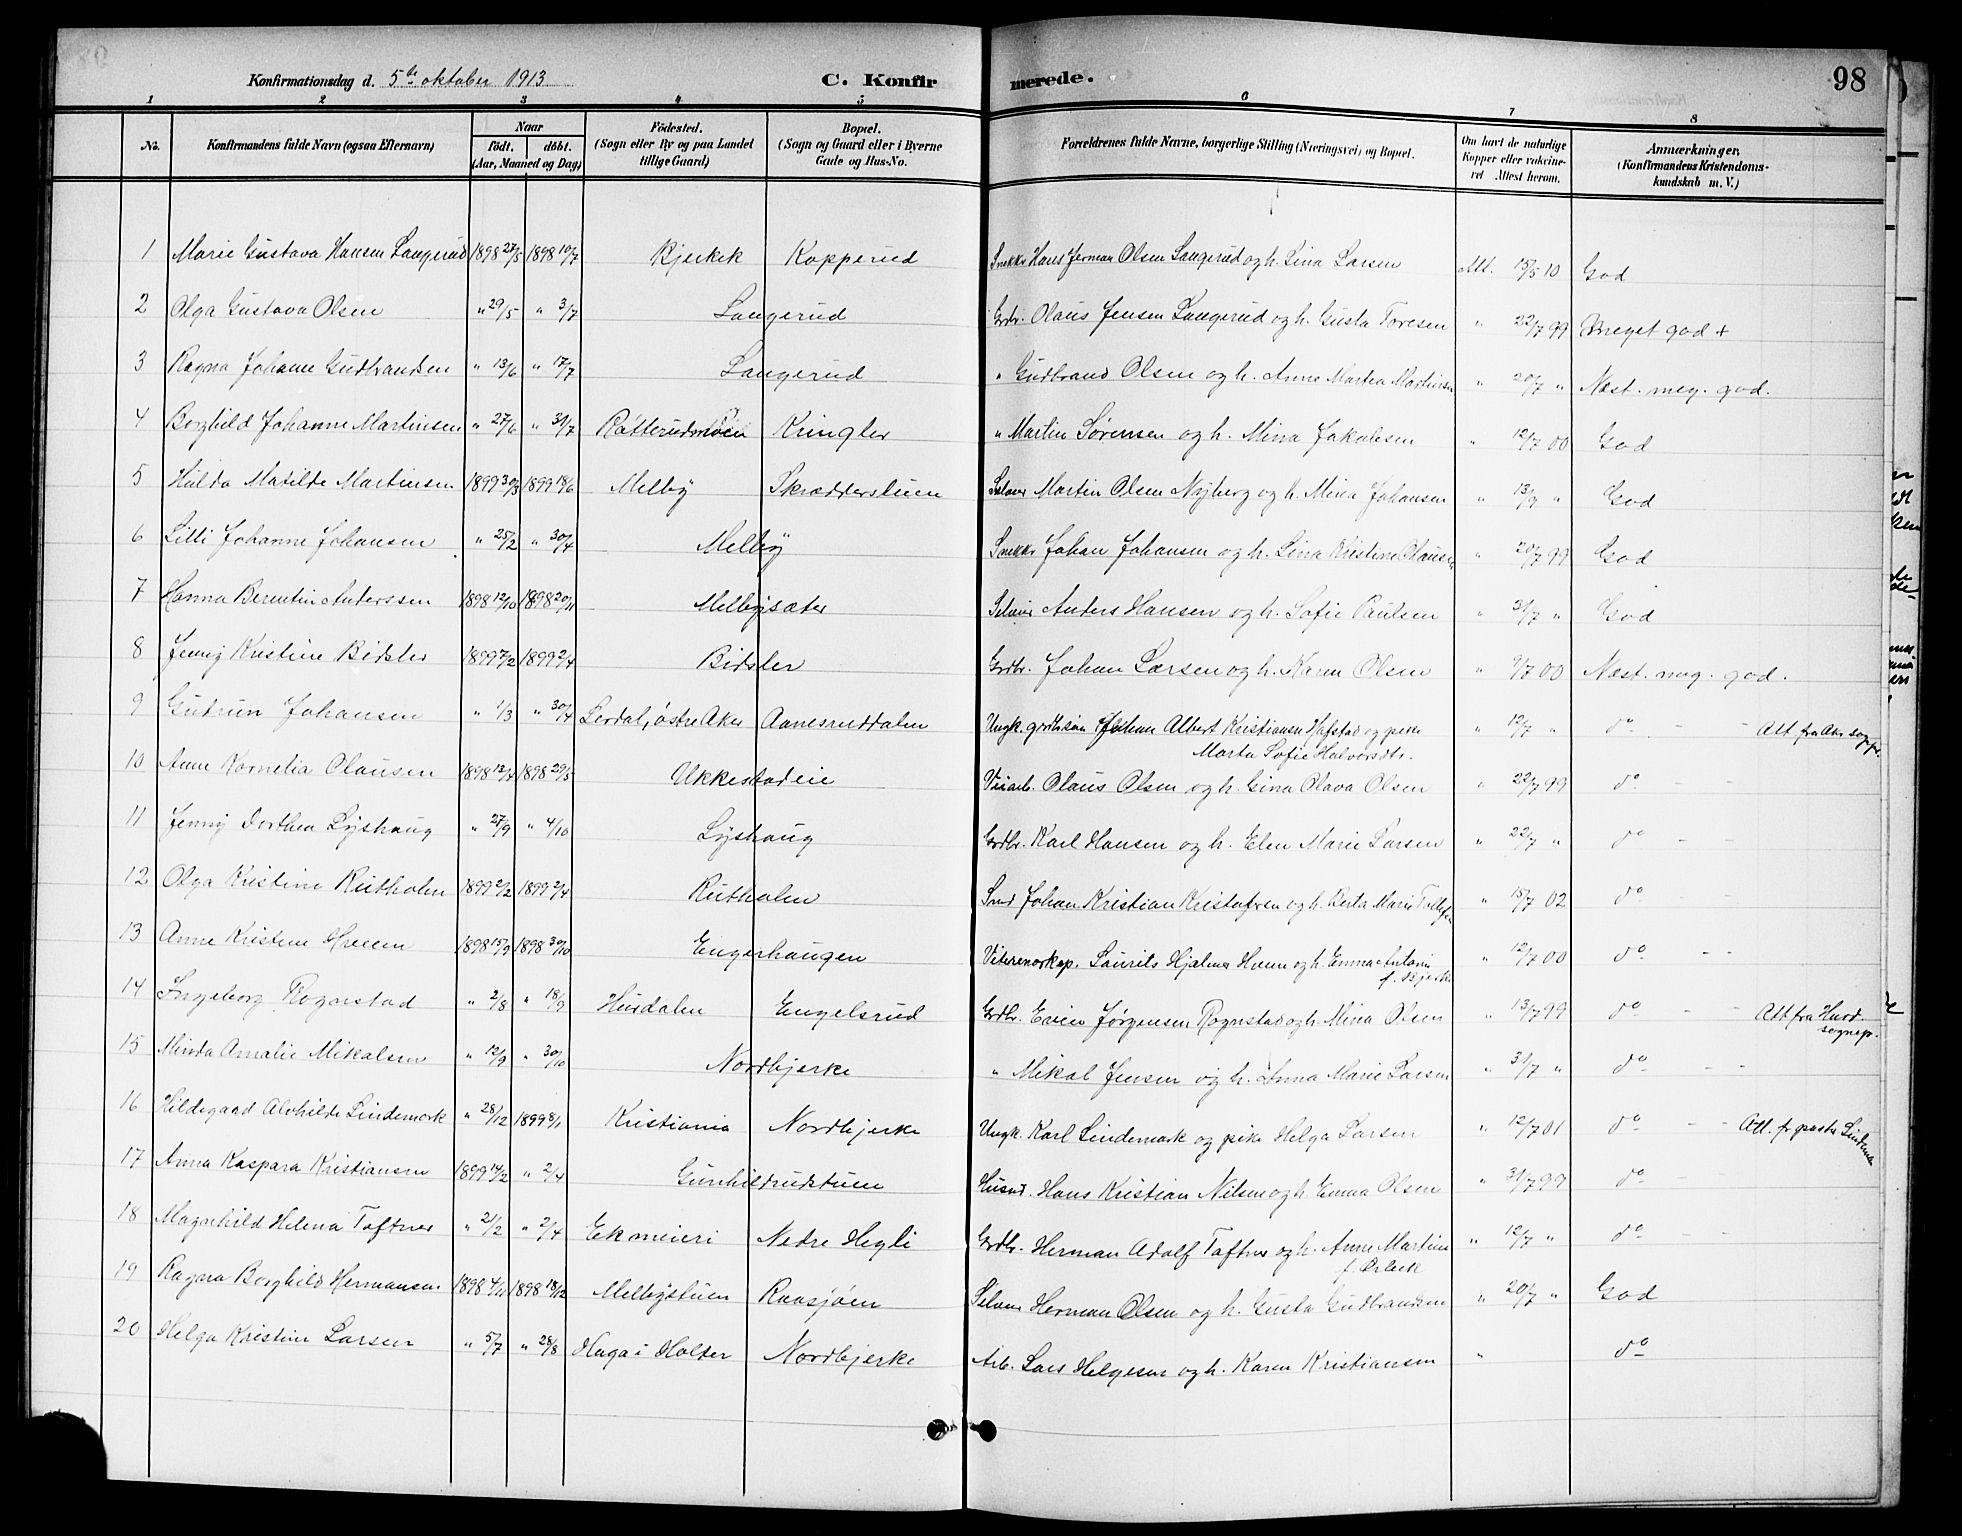 Konfirmationsdag d. 5te oktober 1913
C. Konfir merede. 98
1 2 3 4 5 6 7 8
No. Konfirmandens fulde Navn (ogsaa Efternavn) Naar födt. döbt. (Aar, Maaned og Dag) Födested. (Sogn eller By og paa Landet tillige Gaard) Bopæl. (Sogn og Gaard eller i Byerne Gade og Hus-No. Forældrenes fulde Navne, borgerlige Stilling (Næringsvei) og Bopæl. Om havt de naturlige Kopper eller vakcineret Attest herom. Anmærkninger, (Konfirmandens Kristendomskundskab m. V.)
1 Marie Gustava Hansen Langerud 1898 27/5 1898 10/7 Bjerkek Kopperud Snekkr Hans Herman Olsen Langerud og h. Lina Larsen Att. 15/5 10 God
2 Olga Gustava Olsen " 29/5 " 3/7 Langerud Grdbr. Olaus Jensen Langerud og h. Gusta Toresen " 22/7 99 Meget god +
3 Ragna Johanne Gudbrandsen " 13/6 " 17/7 Langerud " Gudbrand Olsen og h. Anne Martea Martinsen " 20/7 " Næst. meg. god.
4 Borghild Johanne Martinsen " 27/6 " 31/7 Råtterudmoen Kringler " Martin Sørensen og h. Mina Jakobsen " 12/7 00 God
5 Hulda Matilde Martinsen 1899 30/3 1899 18/6 Melby Skrædderstuen Selveier Martin Olsen Nyberg og h. Mina Johansen " 13/9 " God
6 Lilli Johanne Johansen " 25/2 " 30/4 Melby Snekkr Johan Johansen og h. Lina Kristine Olausen " 20/7 99 God
7 Hanna Berntin Anderssen 1898 12/10 1898 20/11 Melbysæter Selveier Anders Hansen og h. Sofie Paulsen " 31/7 " God
8 Jenny Kristine Bidsler 1899 7/2 1899 2/4 Bidsler Grdbr. Johan Larsen og h. Karen Olsen " 9/7 00 Næst. meg. god.
9 Gudrun Johansen " 1/3 " 30/4 Lerdal, østre Aker Aanesruddalen Ungk. grdbrsøn Johan Albert Kristiansen Hafstad og pike " 12/7 " do - - Att fra Aker sogepr.
Marta Sofie Halvorsdtr.
10 Anne Kornelia Olausen 1898 12/4 1898 29/5 Ukkestadeie Veiarb. Olaus Olsen og h. Gina Olava Olsen " 22/7 99 do - -
11 Jenny Dorthea Lyshaug " 27/9 " 4/10 Lyshaug Grdbr. Karl Hansen og h. Elen Marie Larsen " 22/7 " do
12 Olga Kristine Rutholen 1899 2/2 1899 2/4 Rutholen Smed Johan Kristian Kristofersen og h. Berta Marie Tollefsen " 15/7 02 do - -
13 Anne Kristine Hveem 1898 15/9 1898 30/10 Engerhaugen Laurits Hjalmar Hveem og h. Emma Antonie " 12/7 00 do - -
f. Bjerke
14 Ingeborg Rognstad " 2/8 " 18/9 Hurdalen Engelsrud Grdbr. Even Jørgensen Rognstad og h. Mina Olsen " 13/7 99 do - - Att fra Hurd. sognep.
15 Minda Amalie Mikalsen " 12/9 " 30/10 Nordbjerke " Mikal Jensen og h. Anna Marie Larsen " 31/7 " do - -
16 Hildegaard Alvhilde Lindemark " 28/12 1899 8/1 Kristiania Nordbjerke Ungk. Karl Lindemark og pike Helga Larsen " 12/7 01 do - - Att. fr pastor
17 Anna Kaspara Kristiansen 1899 14/2 " 2/4 Gunhildrudstuen Husmd. Hans Kristian Nilsen og h. Emma Olsen " 31/7 99 do -
18 Magnhild Helena Toftner " 21/2 " 2/4 Ekmeieri Nedre Hegli Grdbr. Herman Adolf Toftner og h. Anne Martine " 12/7 " do -
f. Ørbeck
19 Ragna Borghild Hermansen 1898 4/11 1898 18/12 Melbystuen Raasjøen Selveier Herman Olsen og h. Gusta Gudbrandsen " 20/7 " God
20 Helga Kristine Larsen " 5/7 " 28/8 Haga i Holter Nordbjerke Arb. Lars Helgesen og h. Karen Kristiansen " do